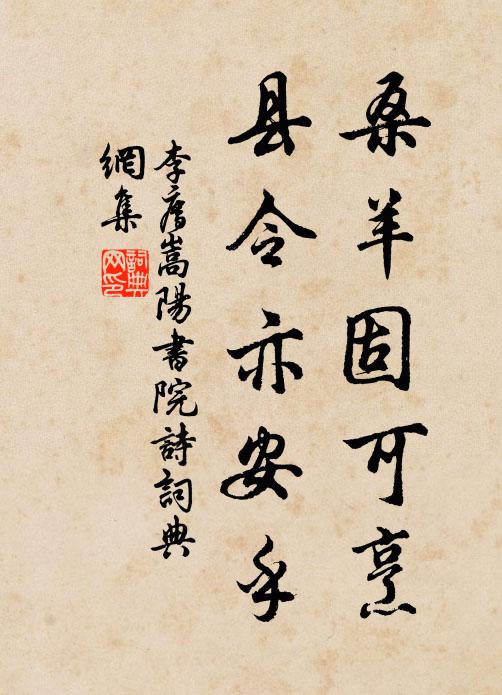 桑羊固可烹
县令亦安乎
李廌嵩陽書院詩詞典
網集
詞典
网印